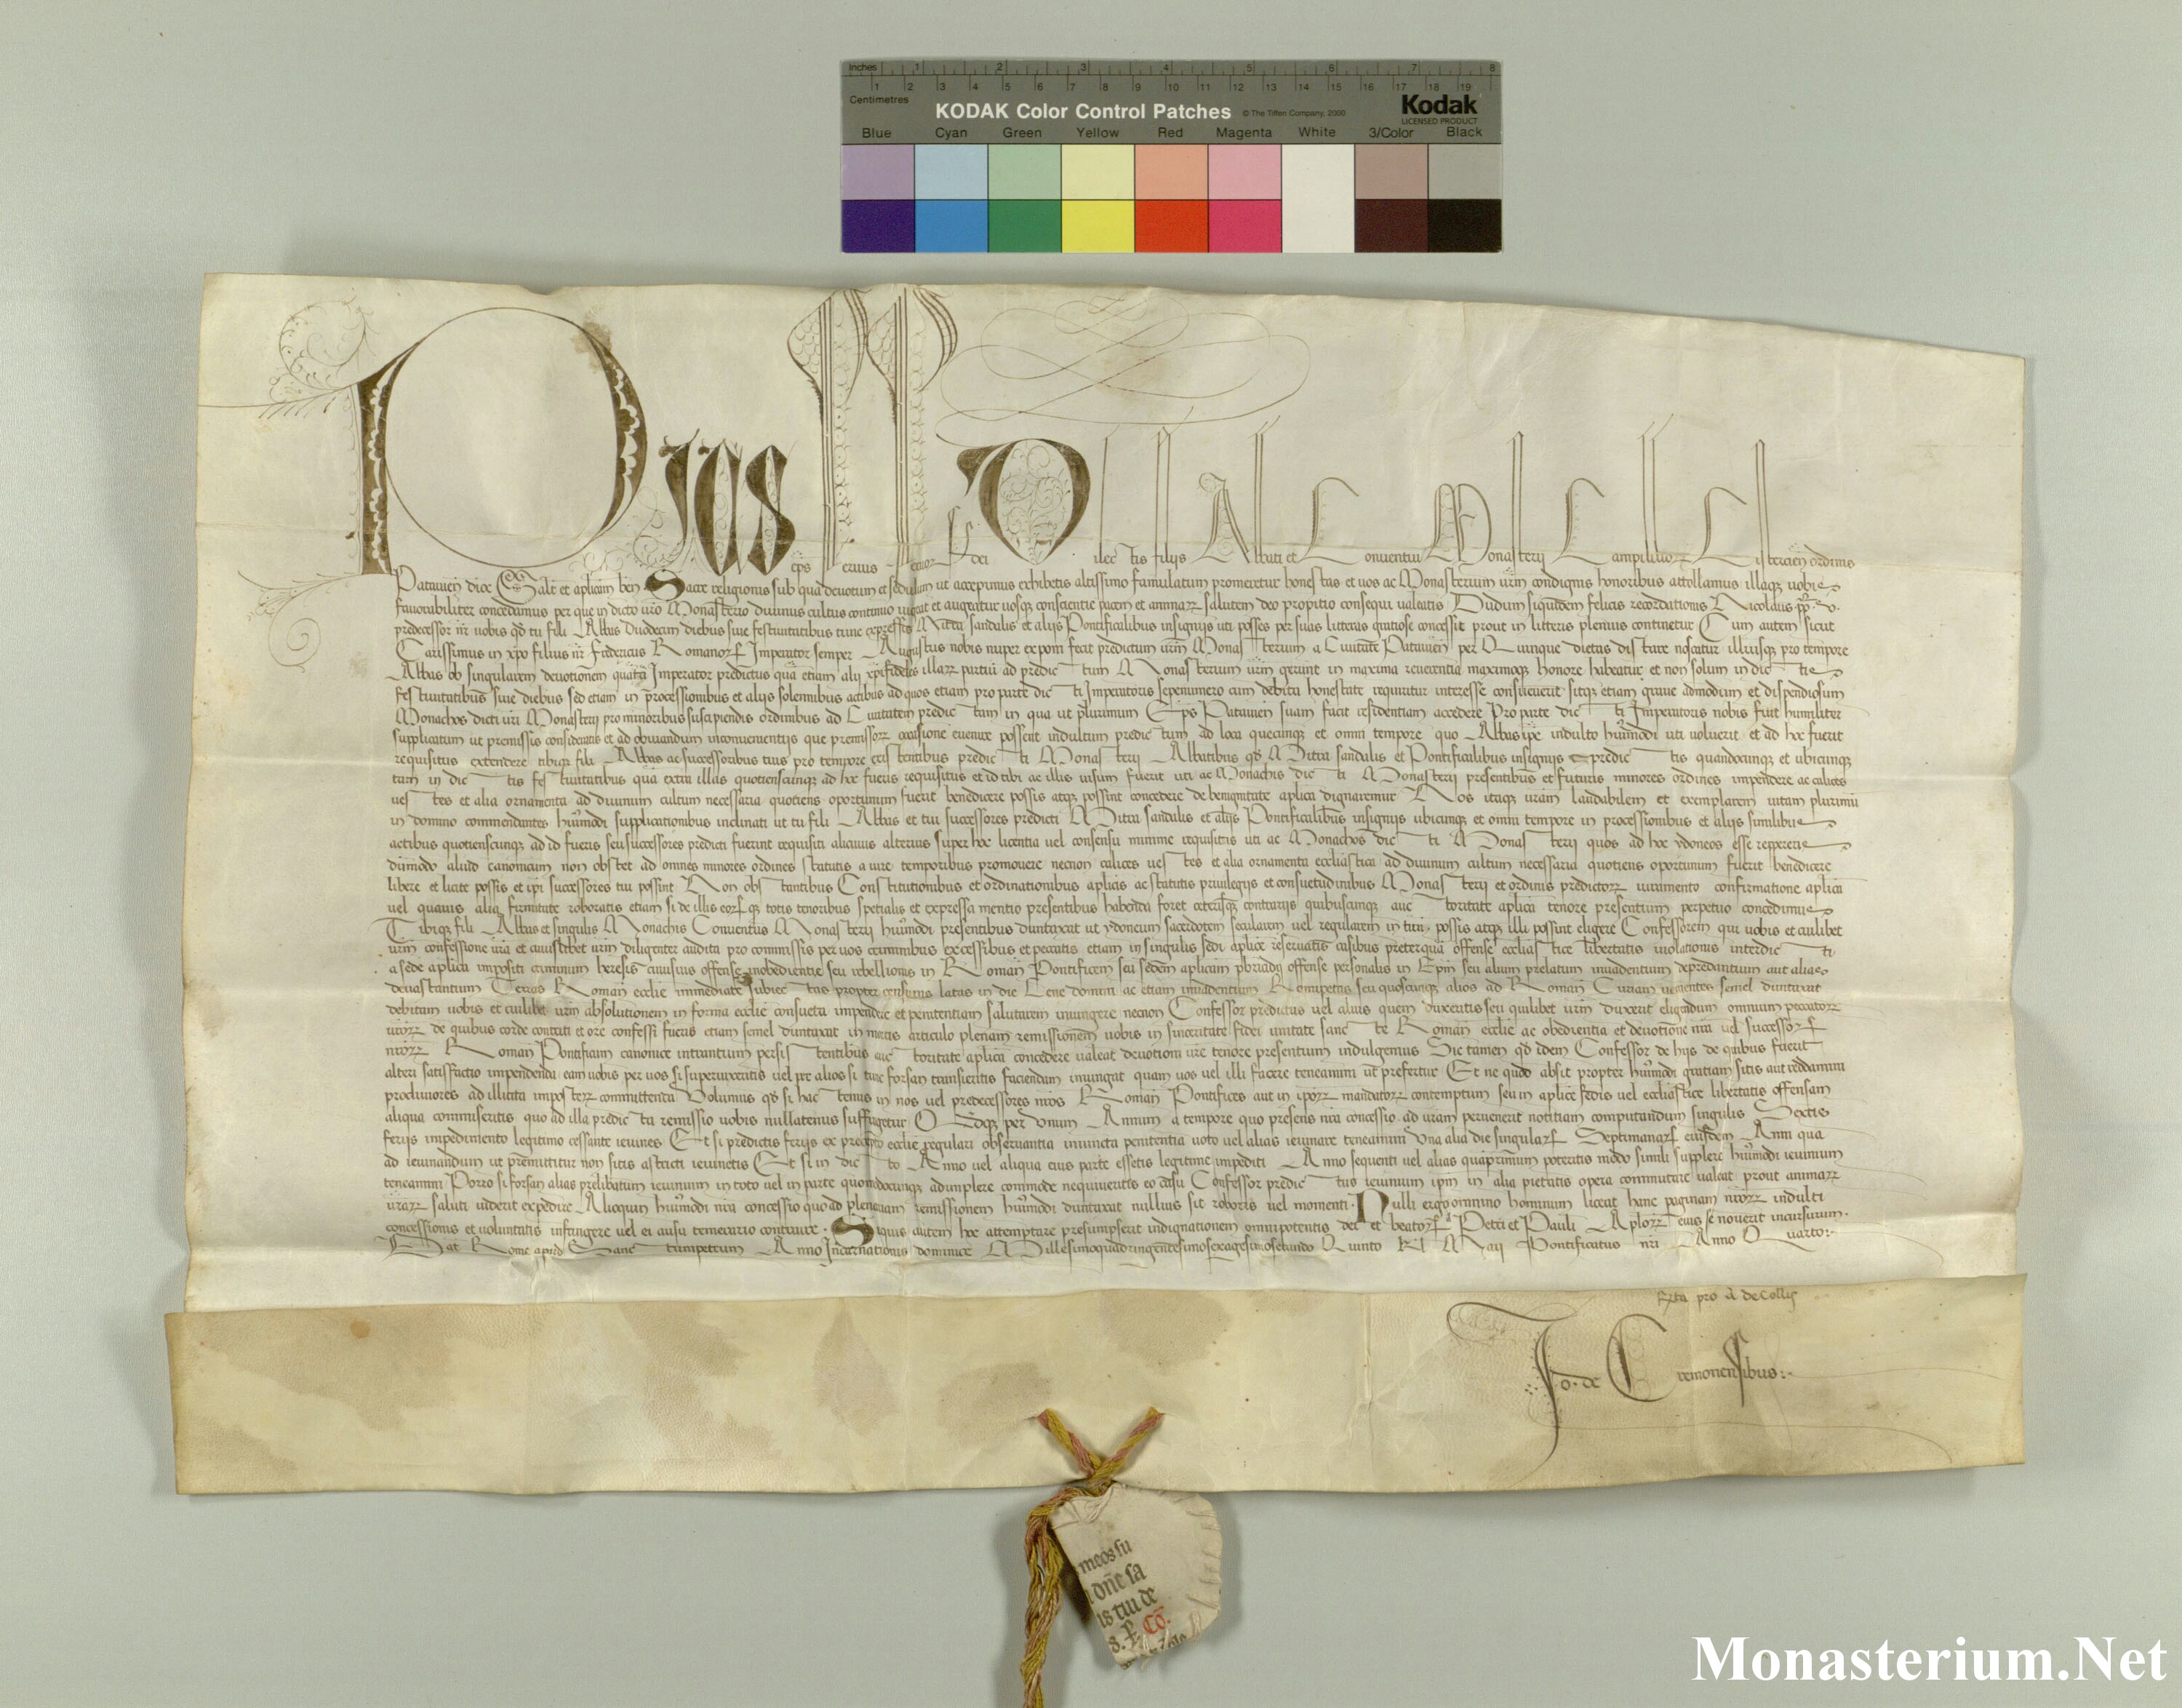 Inches 1 2 3 4 5 6 7 8
Centimetres 1 2 3 4 5 6 7 8 9 10 11 12 13 14 15 16 17 18 19
KODAK Color Control Patches © The Tiffen Company, 2000 Kodak
LICENSED PRODUCT
Blue Cyan Green Yellow Red Magenta White 3/Color Black
Pius eps servus servor dei Dilectis filijs Abbati et Conuentui Monasterij Campililior Cistercien ordinis
Patauien dioc Salt et aplicam ben Sacre religionis sub qua deuotum et sedulum ut accepimus exhibetis altissimo famulatum promeretur honestas et uos ac Monasterium urm condignis honoribus attollamus illaqz uobis
fauorabiliter concedamus per que in dicto uro Monasterio diuinus cultus continuo uigeat et augeatur uosqz conscientie pacem et animarz salutem deo propitio consequi ualeatis Dudum siquidem felicis recordationis Nicolaus pp v
predecessor nr uobis qd tu fili Abbas Duodecim diebus siue festiuitatibus tunc expressis Mitra sandalis et alijs Pontificalibus insignijs uti posses per suas litteras gratiose concessit prout in litteris plenius continetur Cum autem sicut
Carissimus in xpo filius nr Fridericus Romanor Imperator semper Augustus nobis nuper exponi fecit predictum urm Monasterium a Ciuitate Patauien per Quinque dietas distare noscatur illiusqz pro tempore
Abbas ob singularem deuotionem quam Imperator predictus qua etiam alij xpifideles illarz partiu ad predictum Monasterium urm gerunt in maxima reuerentia maximoqz honore habeatur et non solum in dictis
festiuitatibus siue diebus sed etiam in processionibus et alijs solennibus actibus ad quos etiam pro parte dicti Imperatoris sepenumero cum debita honestate requiritur interesse consueuerit sitqz etiam graue admodum et dispendiosum
Monachos dicti uri Monasterij pro minoribus suscipiendis ordinibus ad Ciuitatem predictam in qua ut plurimum Eps Patauien suam facit residentiam accedere Pro parte dicti Imperatoris nobis fuit humiliter
supplicatum ut premissis consideratis et ad obuiandum inconuenientijs que premissorz occasione euenire possent indultum predictum ad loca quecunqz et omni tempore quo Abbas ipe indulto humodi uti uoluerit et ad hoc fuerit
requisitus extendere tibiqz fili Abbas ac successoribus tuis pro tempore existentibus predicti Monasterij Abbatibus qd Mitra sandalis et Pontificalibus insignijs predictis quandocunqz et ubicunqz
tam in dictis festiuitatibus qua extra illas quotienscunqz ad hoc fueris requisitus et id tibi ac illis uisum fuerit uti ac Monachis dicti Monasterij presentibus et futuris minores ordines impendere ac calices
uestes et alia ornamenta ad diuinum cultum necessaria quotiens oportunum fuerit benedicere possis atqz possint concedere de benignitate aplica dignaremur Nos itaqz uram laudabilem et exemplarem uitam plurimu
in domino commendantes humodi supplicationibus inclinati ut tu fili Abbas et tui successores predicti Mitra sandalis et alijs Pontificalibus insignijs ubicunqz et omni tempore in processionibus et alijs similibus
actibus quotienscunqz ad id fueris seu successores predicti fuerint requisiti alicuius alterius super hoc licentia uel consensu minime requisitis uti ac Monachos dicti Monasterij quos ad hoc ydoneos esse repereris
dummodo aliud canonicum non obstet ad omnes minores ordines statutis a iure temporibus promouere necnon calices uestes et alia ornamenta ecclesiastica ad diuinum cultum necessaria quotiens oportunum fuerit benedicere
libere et licite possis et ipi successores tui possint Non obstantibus Constitutionibus et ordinationibus aplicis ac statutis priuilegijs et consuetudinibus Monasterij et ordinis predictorz iuramento confirmatione aplica
uel quauis alia firmitate roboratis etiam si de illis eorqz totis tenoribus spetialis et expressa mentio presentibus habenda foret ceterisqz contrarijs quibuscunqz auctoritate aplica tenore presentium perpetuo concedimus
Tibiqz fili Abbas et singulis Monachis Conuentus Monasterij humodi presentibus duntaxat ut ydoneum sacerdotem secularem uel regularem possis atqz illi possint eligere Confessorem qui uobis et cuilibet
urm confessione ura et cuiuslibet urm diligenter audita pro commissis per uos criminibus excessibus et peccatis etiam in singulis sedi aplice reseruatis casibus preterqua offense ecclesiastice libertatis uiolationis interdicti
a sede aplica impositi criminum heresis cuiusuis offense inobedientie seu rebellionis in Roman Pontificem seu sedem aplicam pbriady offense personalis in Epm seu alium prelatum inuadentium depredantium aut alias
deuastantium Terras Roman ecclie immediate subiectas propter censuras latas in die Cene domini ac etiam inuadentium Romipetas seu quoscunqz alios ad Roman Curiam uenientes semel duntaxat
debitam uobis et cuilibet urm absolutionem in forma ecclie consueta impendere et penitentiam salutarem iniungere necnon Confessor predictus uel alius quem duxeritis seu quilibet urm duxerit eligendum omnium peccatorz
urorz de quibus corde contriti et ore confessi fueritis etiam semel duntaxat in mortis articulo plenam remissionem uobis in sinceritate fidei unitate sancte Roman ecclie ac obedientia et deuotione nra uel successor
nrorz Roman Pontificum canonice intrantium persistentibus auctoritate aplica concedere ualeat deuotioni ure tenore presentium indulgemus Sic tamen qd idem Confessor de hijs de quibus fuerit
alteri satisfactio impendenda eam uobis per uos si superuixeritis uel per alios si tunc forsan transieritis faciendam iniungat quam uos uel illi facere teneamini ut prefertur Et ne quod absit propter humodi gratiam sitis aut reddamini
procliuiores ad illicita imposterz committenda Volumus qd si hactenus in nos uel predecessores nros Roman Pontifices aut in iporz mandatorz contemptum seu in aplice sedis uel ecclesiastice libertatis offensam
aliqua commiseritis quo ad illa predicta remissio uobis nullatenus suffragetur Qdqz per Vnum Annum a tempore quo presens nra concessio ad uram peruenerit notitiam computandum singulis Sextis
ferijs impedimento legitimo cessante ieiunes Et si predictis ferijs ex precepto ecclie regulari obseruantia iniuncta penitentia uoto uel alias ieiunare teneamini Vna alia die singular Septimanar eiusdem Anni qua
ad ieiunandum ut premittitur non sitis astricti ieiunetis Et si in dicto Anno uel aliqua eius parte essetis legitime impediti Anno sequenti uel alias quamprimum poteritis modo simili supplere humodi ieiunium
teneamini Porro si forsan alias prelibatum ieiunium in toto uel in parte quomodocunqz adimplere commode nequiueritis eo casu Confessor predictus ieiunium ipm in alia pietatis opera commutare ualeat prout animarz
urarz saluti uiderit expedire Alioquin humodi nra concessio quo ad plenariam remissionem humodi duntaxat nullius sit roboris uel momenti Nulli ergo omnino hominum liceat hanc paginam nrorz indulti
concessionis et uoluntatis infringere uel ei ausu temerario contraire Siquis autem hoc attemptare presumpserit indignationem omnipotentis dei et beator Petri et Pauli Aplorz eius se nouerit incursurum
Dat Rome apud Sanctumpetrum Anno Incarnationis dominice Millesimoquadringentesimosexagesimosecundo Quinto kl Maij Pontificatus nri Anno Quarto
Rta pro A de Collis
Jo. de Cremonensibus
meos su
dne sa
is tui de
Co
Monasterium.Net